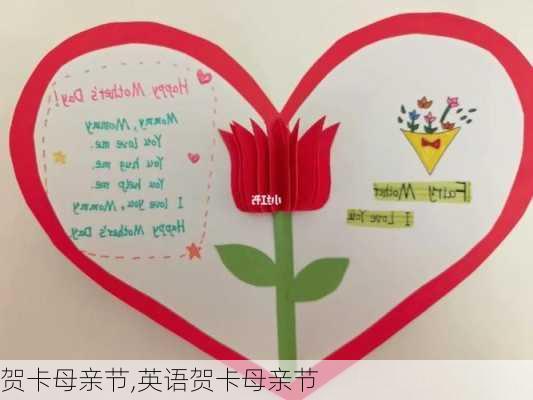 Happy Mother's Day!
Mommy, Mommy
You love me.
You hug me.
You help me.
I love you, Mommy
Happy Mother's Day
小红书
Fairy Mother
I Love You
贺卡母亲节,英语贺卡母亲节